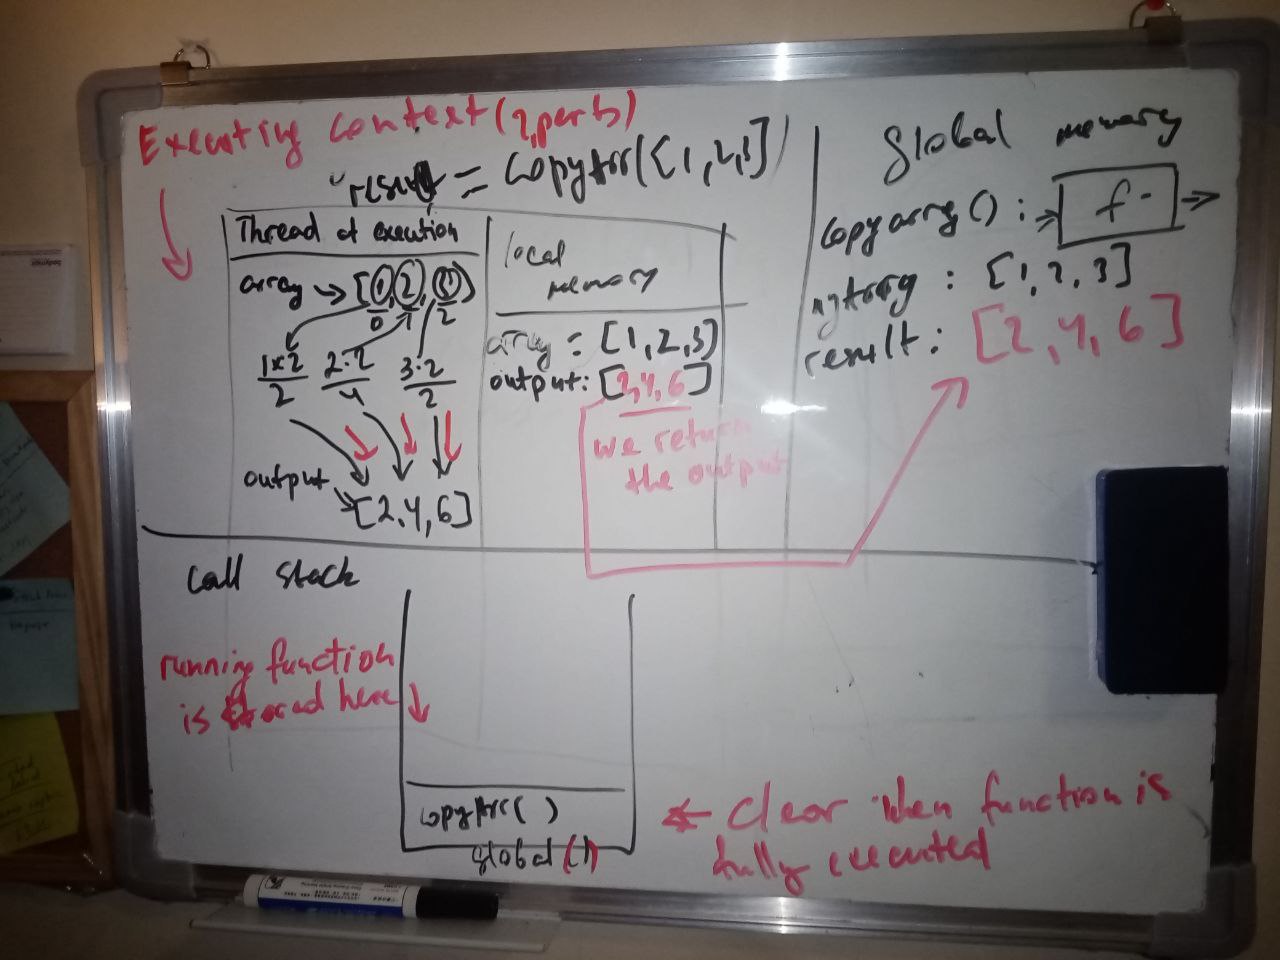 Executing context (2 parts)
result = copyArr([1,2,3])
Thread of execution
array → [1, 2, 3]
0 1 2
1×2 2·2 3·2
2 4 2
output → [2,4,6]
local
memory
array = [1,2,3]
output: [2,4,6]
we return
the output
Global memory
copyarray() : → f- →
myArray : [1, 2, 3]
result: [2, 4, 6]
call stack
running function
is stored here
copyArr( )
global()
← Clear when function is
fully executed